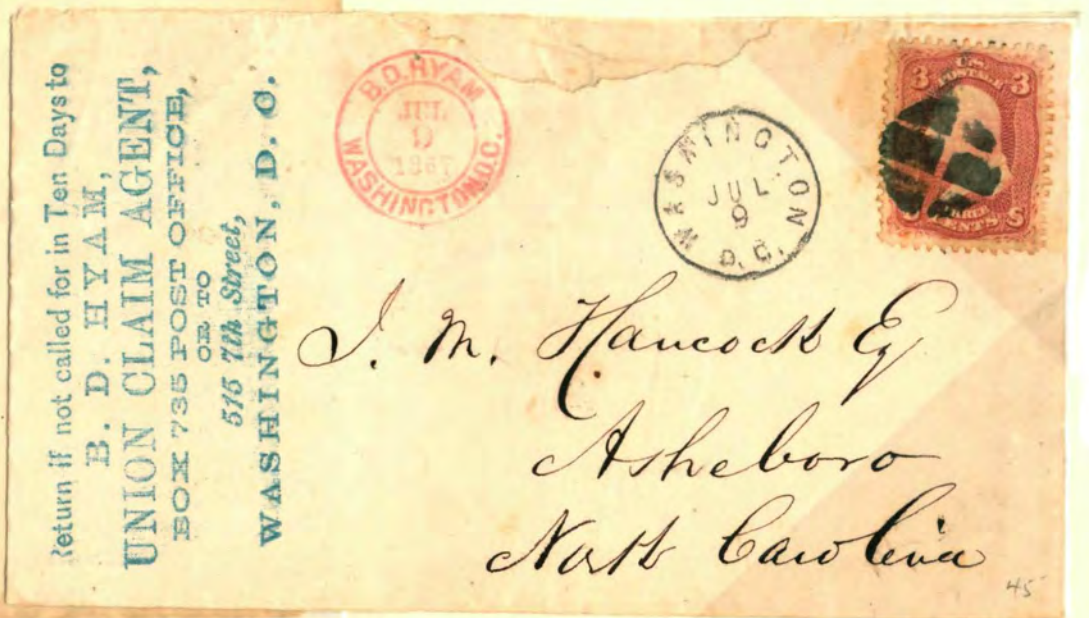 Return if not called for in Ten Days to
B. D. HYAM,
UNION CLAIM AGENT,
BOX 735 POST OFFICE,
OR TO
515 7th Street,
WASHINGTON, D. C.
B.D. HYAM
JUL
9
1867
WASHINGTON.D.C.
WASHINGTON
JUL
9
D.C.
3 U.S. POSTAGE 3
THREE
CENTS
J. M. Hancock Eq
Asheboro
North Carolina
45